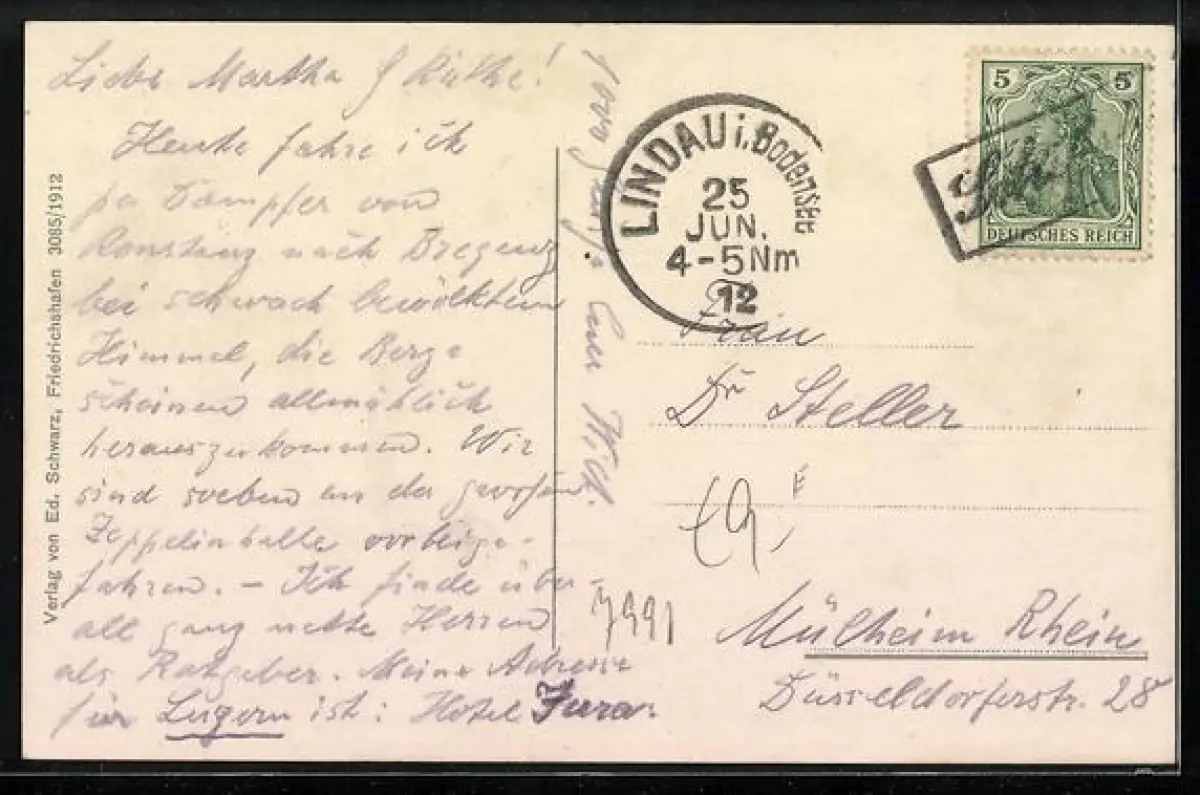 Liebe Martha & Käthe!
Heute fahre ich
per Dampfer von
Konstanz nach Bregenz
bei schwach bewölktem
Himmel, die Berge
scheinen allmählich
herauszukommen. Wir
sind soeben an der grossen
Zeppelinhalle vorbeige-
fahren. – Ich finde über-
all ganz nette Herren
als Ratgeber. Meine Adresse
für Luzern ist: Hotel Jura.
Euer
Verlag von Ed. Schwarz, Friedrichshafen 3085/1912
LINDAU i. Bodensee
25
JUN.
4-5 Nm
12
5 5
DEUTSCHES REICH
Frau
Dr Steller
Mülheim Rhein
Düsseldorferstr. 28
7991